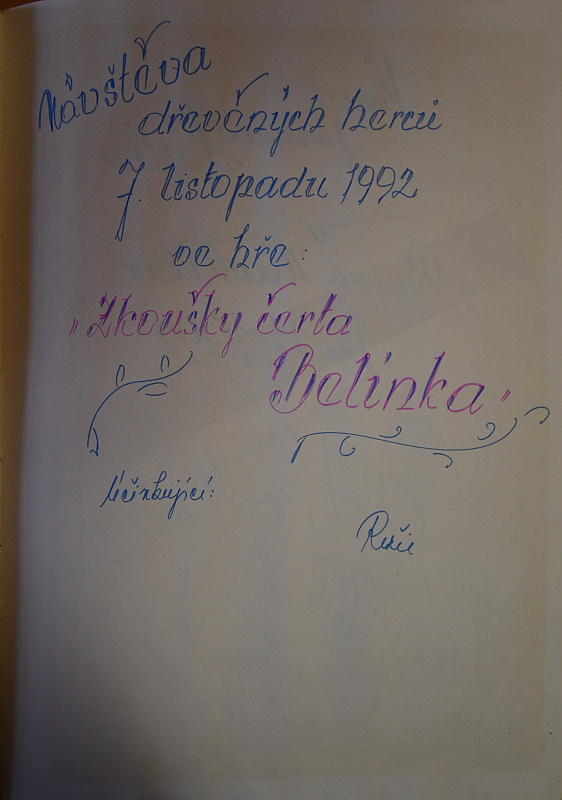 Návštěva
dřevěných herců
7. listopadu 1992
ve hře:
"Zkoušky čerta
Belínka"
Účinkující:
Režie